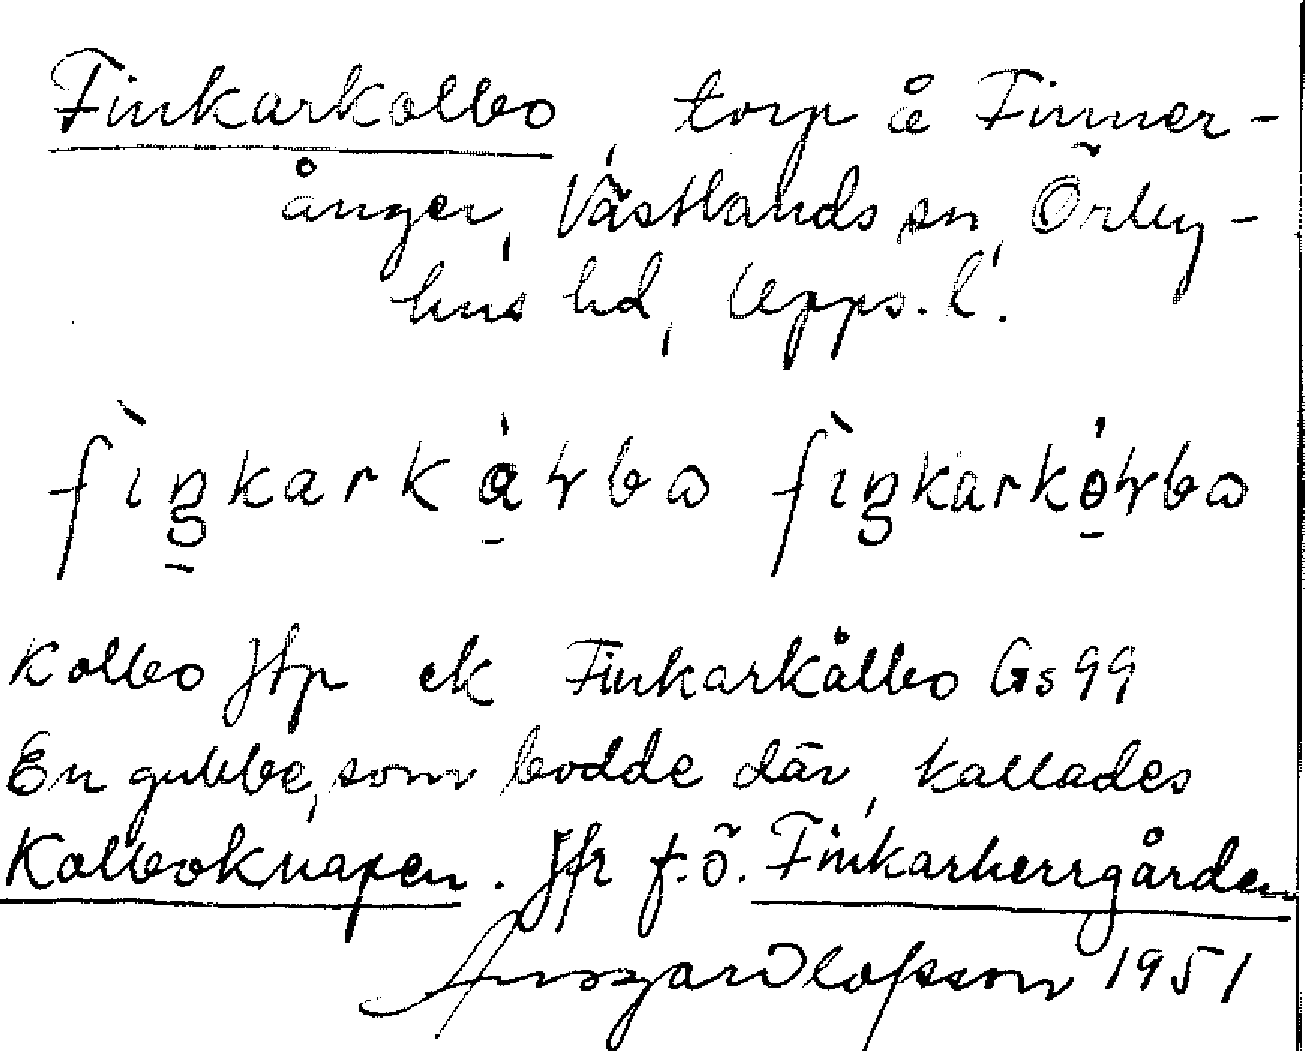 Finkarkolbo, torp å Finner-
ånger, Västlands sn, Örby-
hus hd, Upps. l.
Kolbo Jfp ek Finkarkålbo Gs 99
En gubbe, som bodde där, kallades
Kolboknapen. Jfr f.ö. Finkarherrgården
Ansgar Olofsson 1951